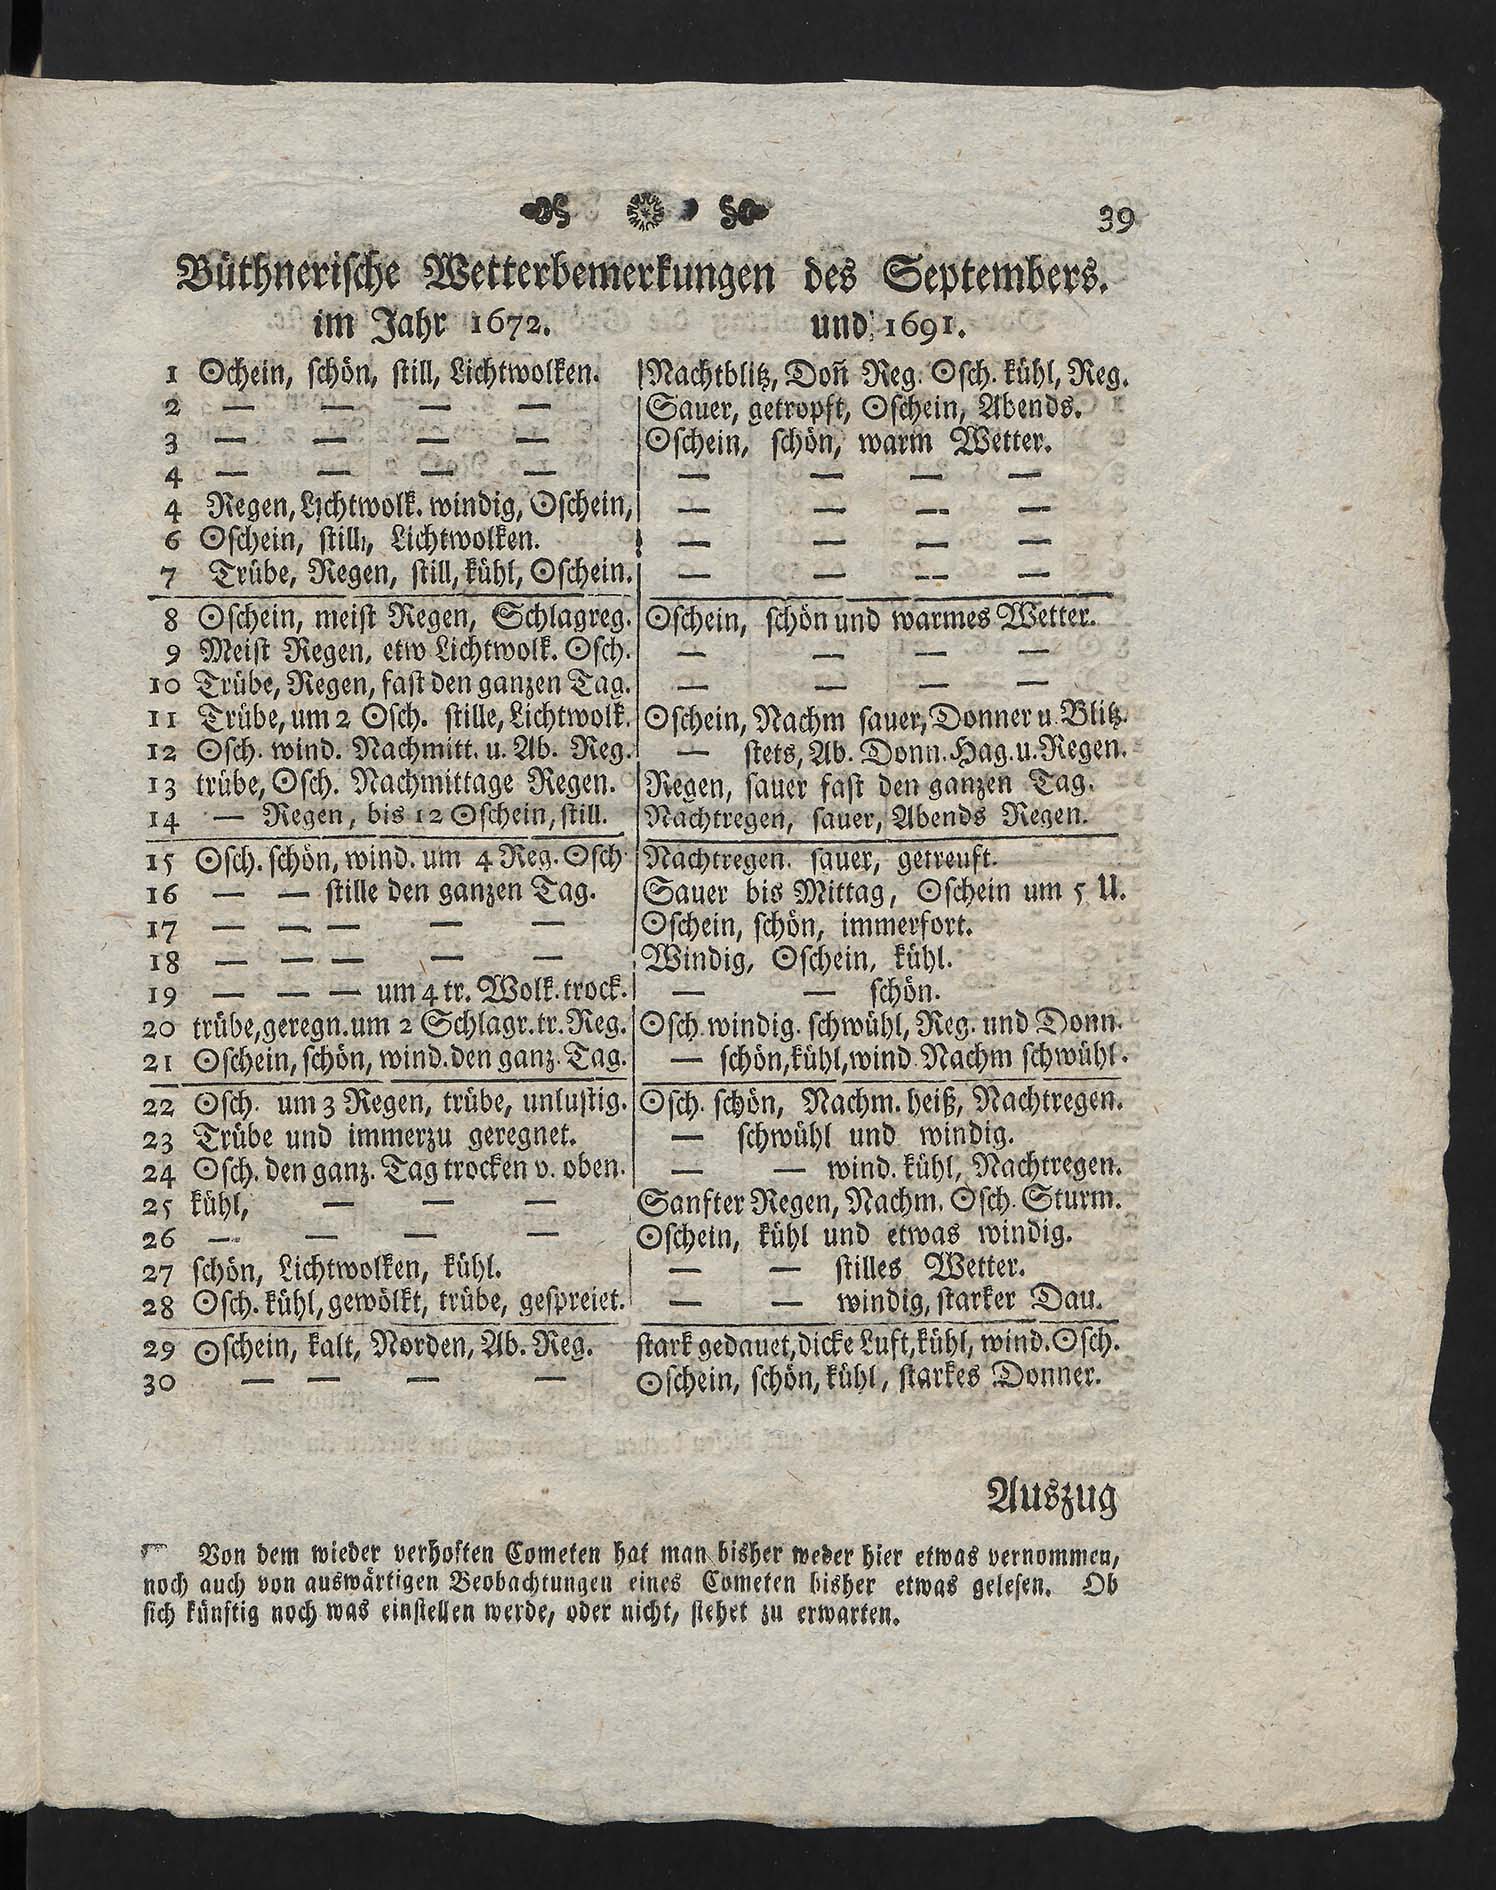 39
Büthnerische Wetterbemerkungen des Septembers.
im Jahr 1672. und 1691.
1 ☉chein, schön, still, Lichtwolken. Nachtblitz, Don̄ Reg. ☉sch. kühl, Reg.
2 — — — — Sauer, getropft, ☉schein, Abends.
3 — — — — ☉schein, schön, warm Wetter.
4 — — — — — — — —
4 Regen, Lichtwolk. windig, ☉schein, — — — —
6 ☉schein, still, Lichtwolken. — — — —
7 Trübe, Regen, still, kühl, ☉schein. — — — —
8 ☉schein, meist Regen, Schlagreg. ☉schein, schön und warmes Wetter.
9 Meist Regen, etw Lichtwolk. ☉sch. — — — —
10 Trübe, Regen, fast den ganzen Tag. — — — —
11 Trübe, um 2 ☉sch. stille, Lichtwolk. ☉schein, Nachm sauer, Donner u. Blitz.
12 ☉sch. wind. Nachmitt. u. Ab. Reg. — stets, Ab. Donn. Hag. u. Regen.
13 trübe, ☉sch. Nachmittage Regen. Regen, sauer fast den ganzen Tag.
14 — Regen, bis 12 ☉schein, still. Nachtregen, sauer, Abends Regen.
15 ☉sch. schön, wind. um 4 Reg. ☉sch Nachtregen. sauer, getreuft.
16 — — stille den ganzen Tag. Sauer bis Mittag, ☉schein um 5 U.
17 — — — — — ☉schein, schön, immerfort.
18 — — — — — Windig, ☉schein, kühl.
19 — — — um 4 tr. Wolk. trock. — — schön.
20 trübe, geregn. um 2 Schlagr. tr. Reg. ☉sch windig. schwühl, Reg. und Donn.
21 ☉schein, schön, wind. den ganz. Tag. — schön, kühl, wind Nachm schwühl.
22 ☉sch. um 3 Regen, trübe, unlustig. ☉sch. schön, Nachm. heiß, Nachtregen.
23 Trübe und immerzu geregnet. — schwühl und windig.
24 ☉sch. den ganz. Tag trocken v. oben. — — wind. kühl, Nachtregen.
25 kühl, — — — Sanfter Regen, Nachm. ☉sch. Sturm.
26 — — — — ☉schein, kühl und etwas windig.
27 schön, Lichtwolken, kühl. — — stilles Wetter.
28 ☉sch. kühl, gewölkt, trübe, gespreiet. — — windig, starker Dau.
29 ☉schein, kalt, Norden, Ab. Reg. stark gedauet, dicke Luft, kühl, wind. ☉sch.
30 — — — — ☉schein, schön, kühl, starkes Donner.
Auszug
Von dem wieder verhoften Cometen hat man bisher weder hier etwas vernommen,
noch auch von auswärtigen Beobachtungen eines Cometen bisher etwas gelesen. Ob
sich künftig noch was einstellen werde, oder nicht, stehet zu erwarten.